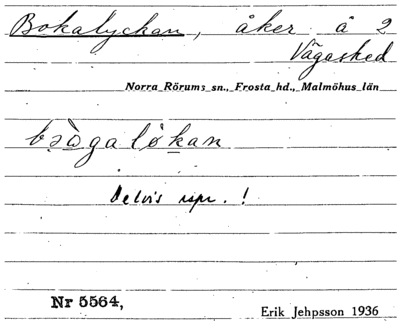 Bokalyckan, åker å 2
Vägasked
Norra Rörums sn., Frosta hd., Malmöhus län
bəàgalo̊kan
Delvis rspr. !
Nr 5564,
Erik Jehpsson 1936